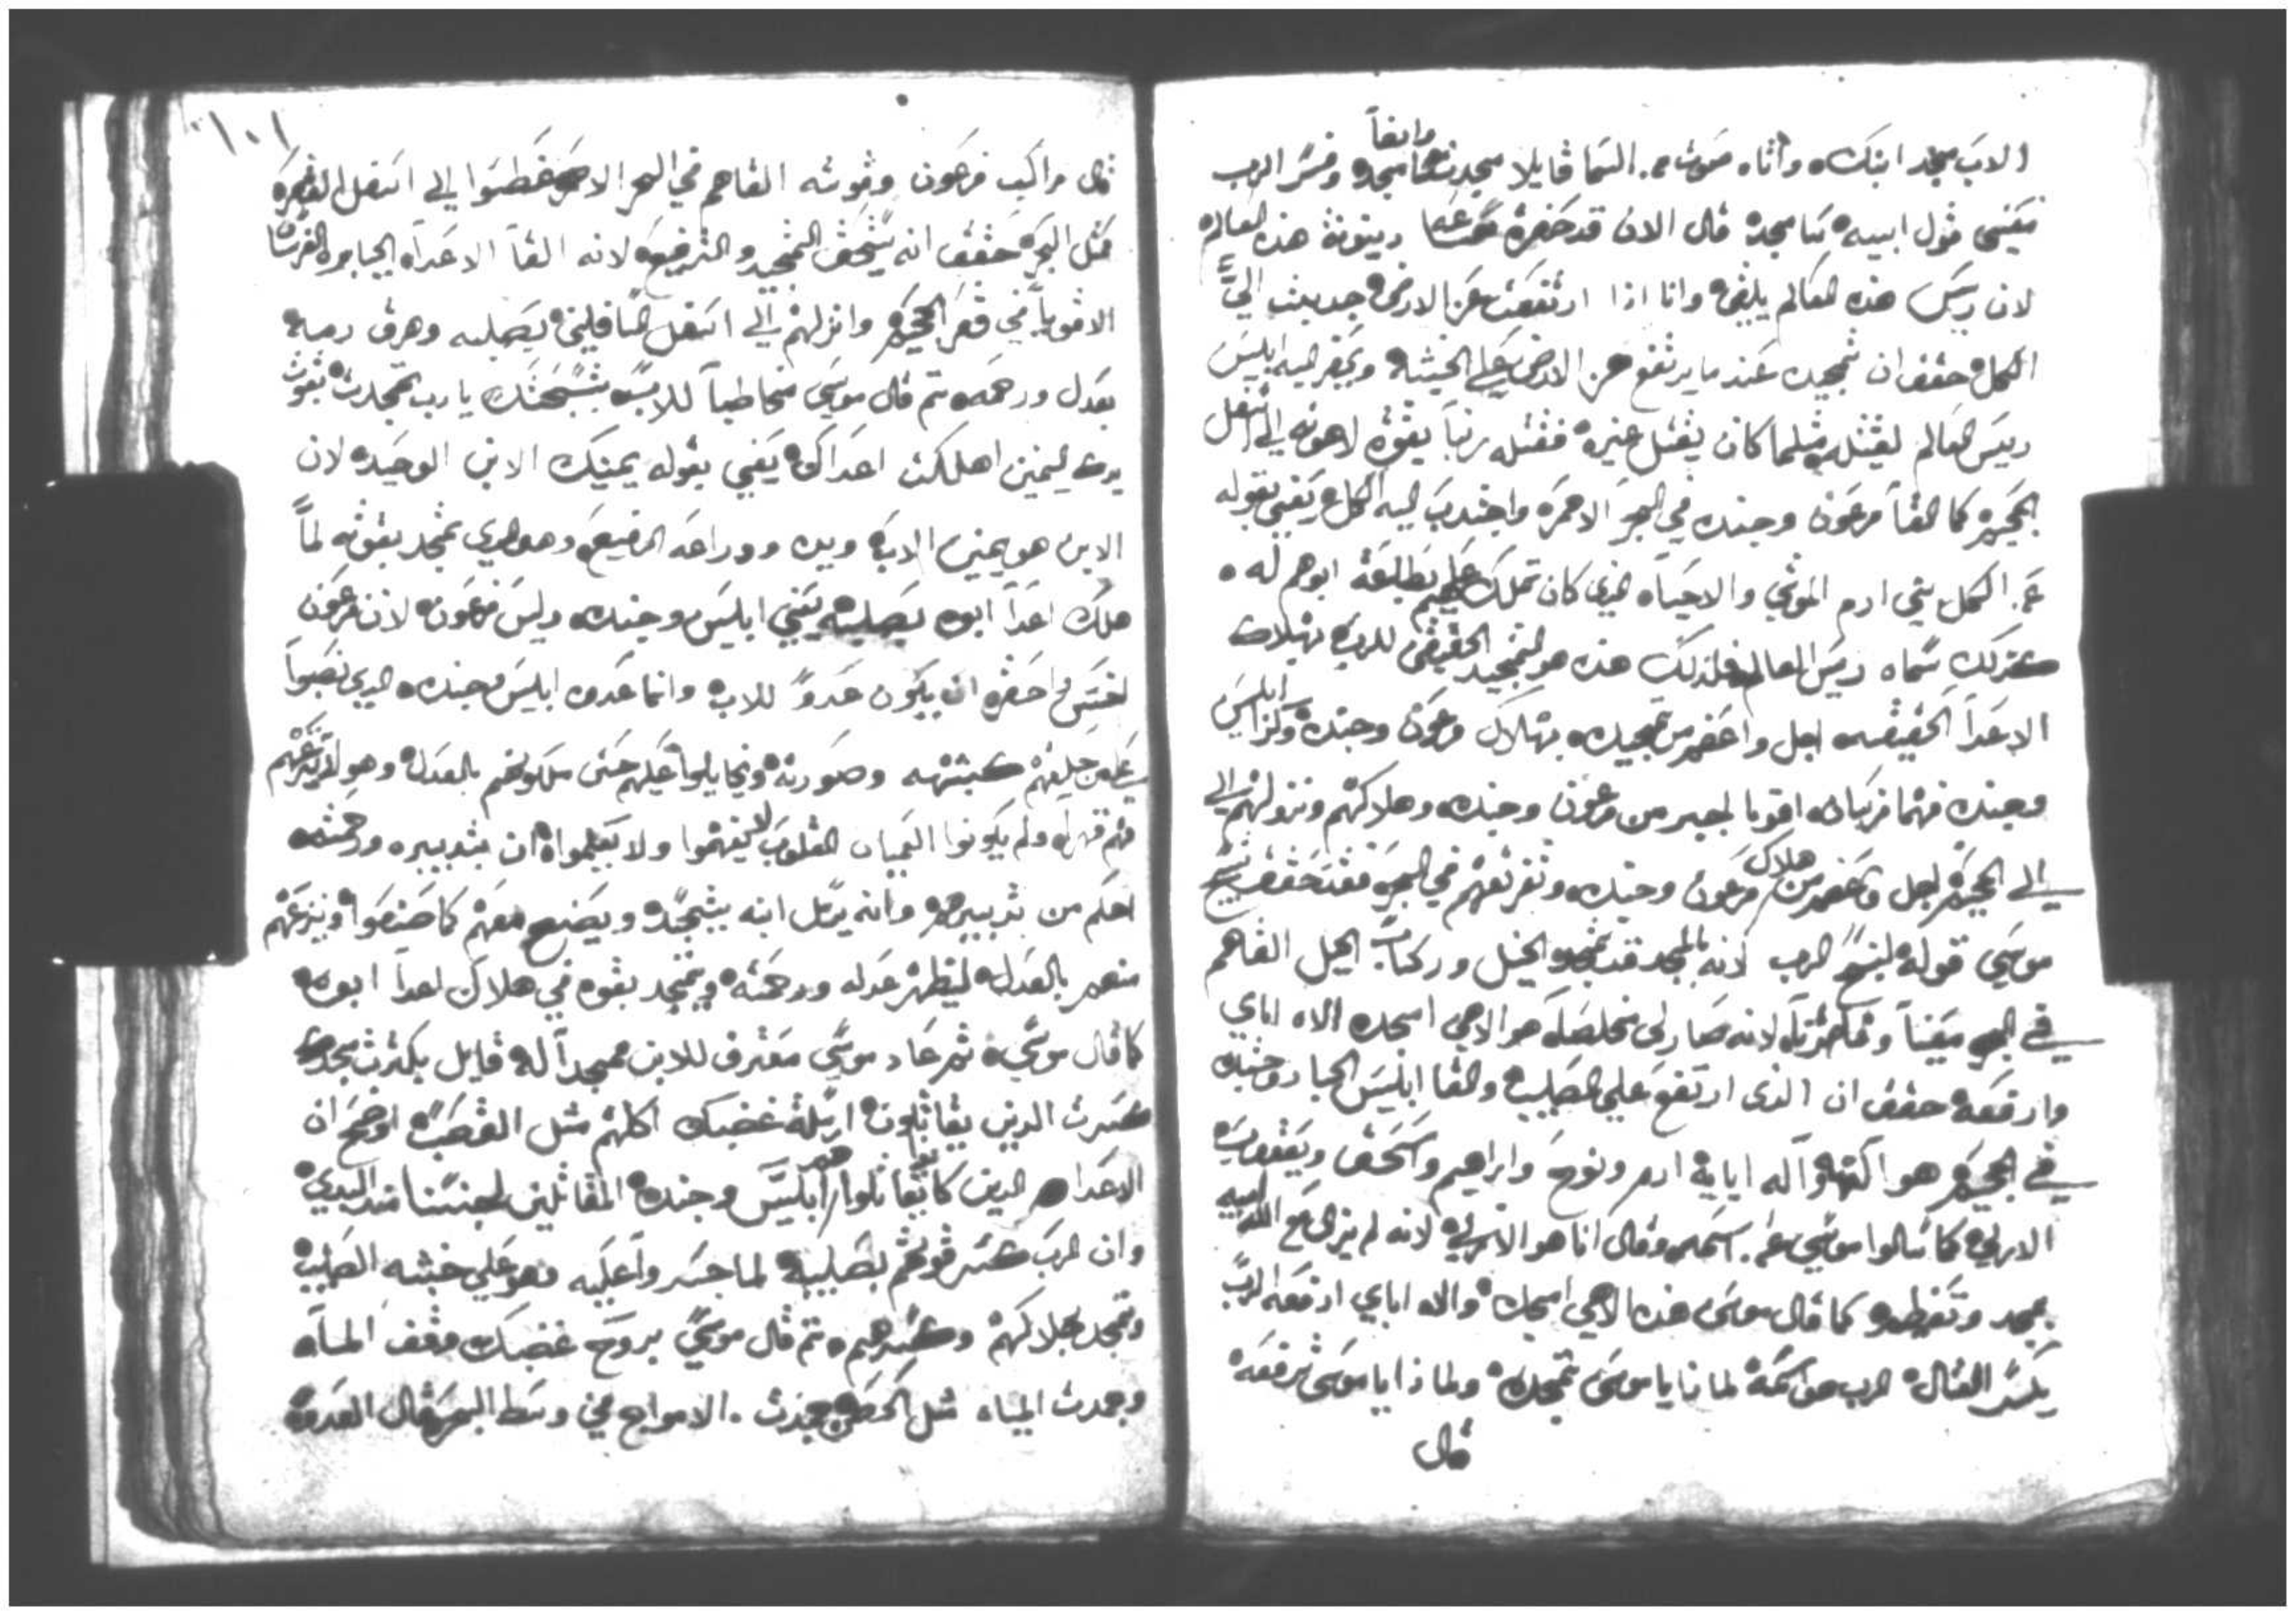 الاب مجد ابنك واتاه صوت من السما قايلا مجدت وايضاً امجد وفسر الرب
معني قول ابيه سامجد قال الان قد حضرة دينونة هذه العالم
لان ريس هذه العالم يلقي وانا اذا ارتفعت عن الارض جدبت اليَّ
الكل حقق ان تمجيده عند ما يرتفع عن الارض علي الخشبه ويحضر اليه ابليس
ريس العالم ليقتله مثلما كان يقتل غيره فقتله ربنا بقوة لاهوته الي اسفل
الجحيم كما القا فرعون وجنده في البحر الاحمر واجتدب اليه الكل يعني بقوله
عن الكل بني ادم الموتي والاحياه الذي كان تملك عليهم بطاعة ابوهم له
كدلك سماه ريس العالم فلذلك هذه هو التمجيد الحقيقي للرب بهلاك
الاعدا الحقيقيه اجل واعضم من تمجيده بهلاك فرعون وجنده وكذا ابليس
وجنده فهما فرسان اقويا اجبر من فرعون وجنده وهلاكهم ونزولهم الي
الي الجحيم اجل واعضم من هلاك فرعون وجنده وتغريقهم في البحر فقد حقق تسبيح
موسي قوله لنسبح الرب لانه بالمجد قد تمجد الخيل وركاب الخيل القاهم
في البحر معيناً وناصراً لانه صار لي مخلصاً هو الاهي امجده الاه اباي
وارفعه حقق ان الذي ارتفع علي الصليب والقا ابليس الجبار وجنده
في الجحيم هو الله واله ابايه ادم ونوح وابراهيم واسحق ويعقوب
الازلي كما سالوا موسي عن اسمه وقال انا هو الازلي لانه لم يزل مع ابيه
يمجد وتعضمه كما قال موسي هذه الاهي امجده والاه اباي ارفعه الرب
يكسر القتال الرب هو اسمه لماذا يا موسي تمجده ولماذا يا موسي ترفعه
قال
١٠١
قال مراكب فرعون وقوته القاهم في البحر الاحمر غطسوا الي اسفل القعر
مثل الحجر حقق انه يستحق التمجيد والترفيع لانه القا الاعداه الجبابره الفرسان
الاقويا في قعر الجحيم وانزلهم الي اسفل السافلين بصليبه وهرق دمه
بعدل ورحمه تم قال موسي مخاطباً للاب بتسبحتك يا رب تمجدت بقوت
يدك اليمين اهلكت اعداك يعني بقوله يمينك الابن الوحيد لان
الابن هو يمين الاب ويده ودراعه الرفيع وهو الدي تمجد بقوته لمّا
هلك اعدا ابوه بصليبه يعني ابليس وجنده وليس فرعون لان فرعون
اخس واحقر ان يكون عدوً للاب وانما عدوه ابليس وجنده الدي نصبوا
علي من خلقهم كشبهه وصورته وتحايلوا عليهم حتي ملكوهم بالعدل وهو لم ينزعهم
منهم قهراً ولم يكونوا العميان القلوب يفهموا ولا يعلموا ان بتدبيره ورحمته
احكم من تدبيرهم وانه يرسل ابنه يتجسد ويصنع معهم كما صنعوا وينزعهم
منهم بالعدل ليظهر عدله ورحمته ويتمجد بقوه في هلاك اعدا ابوه
كما قال موسي ثم عاد موسي معترف للابن ممجداً له قايل بكترت مجدك
كسرت الدين يقاتلون ارسلة غضبك اكلهم مثل القصب اوضح ان
الاعدا هم الدين كانوا يقاتلوا هم ابليس وجنده المقاتلين لجنسنا مند البدي
وان الرب كسر قوتهم بصليبه لما جسروا عليه وهو علي خشبه الصليب
وتمجد بهلاكهم وكسرهم تم قال موسي بروح غضبك وقف الماه
وجمدت المياه مثل الحيطان جمدت الامواج في وسط البحر قال العدو